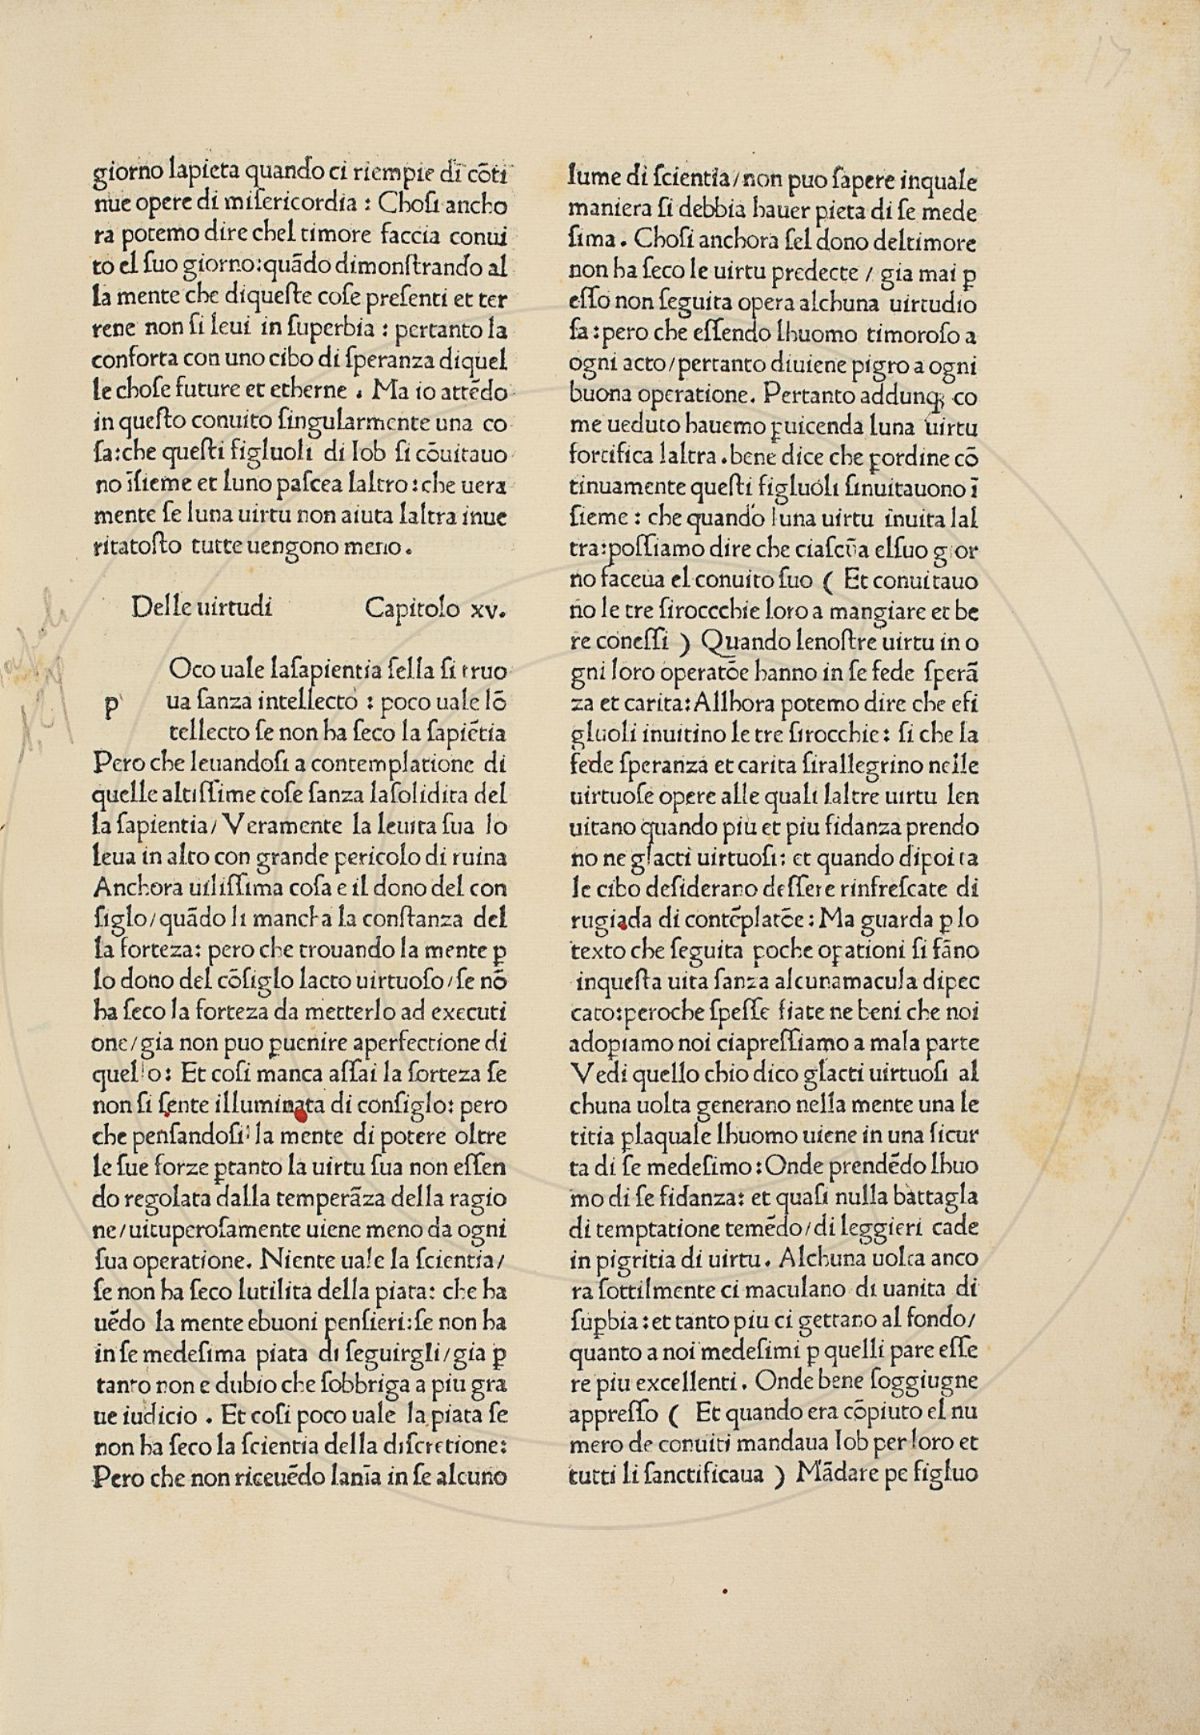 17
giorno lapieta quando ci riempie di cōti
nue opere di miſericordia : Choſi ancho
ra potemo dire chel timore faccia conui
to el ſuo giorno:quādo dimonſtrando al
la mente che diqueſte coſe preſenti et ter
rene non ſi leui in ſuperbia : pertanto la
conforta con uno cibo di ſperanza diquel
le choſe future et etherne . Ma io attēdo
in queſto conuito ſingularmente una co
ſa:che queſti figluoli di Iob ſi cōuitauo
no īſieme et luno paſcea laltro:che uera
mente ſe luna uirtu non aiuta laltra inue
ritatoſto tutte uengono meno .
Delle uirtudi Capitolo xv.
Oco uale laſapientia ſella ſi truo
p ua ſanza intellecto : poco uale lō
tellecto ſe non ha ſeco la ſapiētia
Pero che leuandoſi a contemplatione di
quelle altiſſime coſe ſanza laſolidita del
la ſapientia/ Veramente la leuita ſua lo
leua in alto con grande pericolo di ruina
Anchora uiliſſima coſa e il dono del con
ſiglo/quādo li mancha la conſtanza del
la forteza: pero che trouando la mente ꝑ
lo dono del cōſiglo lacto uirtuoſo/ſe nō
ha ſeco la forteza da metterlo ad executi
one/gia non puo ꝑuenire aperfectione di
quello: Et coſi manca aſſai la forteza ſe
non ſi ſente illuminata di conſiglo: pero
che penſandoſi la mente di potere oltre
le ſue forze ꝑtanto la uirtu ſua non eſſen
do regolata dalla temperāza della ragio
ne/uituperoſamente uiene meno da ogni
ſua operatione. Niente uale la ſcientia/
ſe non ha ſeco lutilita della piata: che ha
uēdo la mente ebuoni penſieri:ſe non ha
in ſe medeſima piata di ſeguirgli/gia ꝑ
tanto non e dubio che ſobbriga a piu gra
ue iudicio . Et coſi poco uale la piata ſe
non ha ſeco la ſcientia della diſcretione:
Pero che non riceuēdo lanīa in ſe alcuno
lume di ſcientia/non puo ſapere inquale
maniera ſi debbia hauer pieta di ſe mede
ſima. Choſi anchora ſel dono deltimore
non ha ſeco le uirtu predecte / gia mai ꝑ
eſſo non ſeguita opera alchuna uirtudio
ſa:pero che eſſendo lhuomo timoroſo a
ogni acto/pertanto diuiene pigro a ogni
buona operatione. Pertanto addunqꝫ co
me ueduto hauemo ꝑuicenda luna uirtu
fortifica laltra.bene dice che ꝑordine cō
tinuamente queſti figluoli ſinuitauono ī
ſieme : che quando luna uirtu inuita lal
tra:poſſiamo dire che ciaſcūa elſuo gior
no faceua el conuito ſuo ( Et conuitauo
no le tre ſiroccchie loro a mangiare et be
re coneſſi ) Quando lenoſtre uirtu in o
gni loro operatōe hanno in ſe fede ſperā
za et carita: Allhora potemo dire che eſi
gluoli inuitino le tre ſirocchie: ſi che la
fede ſperanza et carita ſirallegrino nelle
uirtuoſe opere alle quali laltre uirtu len
uitano quando piu et piu fidanza prendo
no ne glacti uirtuoſi: et quando dipoi ta
le cibo deſiderano deſſere rinfreſcate di
rugiada di contēplatōe: Ma guarda ꝑ lo
texto che ſeguita poche oꝑationi ſi fāno
inqueſta uita ſanza alcunamacula dipec
cato:peroche ſpeſſe fiate ne beni che noi
adopiamo noi ciapreſſiamo a mala parte
Vedi quello chio dico glacti uirtuoſi al
chuna uolta generano nella mente una le
titia ꝑlaquale lhuomo uiene in una ſicur
ta di ſe medeſimo: Onde prendēdo lhuo
mo di ſe fidanza: et quaſi nulla battagla
di temptatione temēdo/di leggieri cade
in pigritia di uirtu. Alchuna uolta anco
ra ſottilmente ci maculano di uanita di
ſuꝑbia:et tanto piu ci gettano al fondo/
quanto a noi medeſimi ꝑ quelli pare eſſe
re piu excellenti. Onde bene ſoggiugne
appreſſo ( Et quando era cōpiuto el nu
mero de conuiti mandaua Iob per loro et
tutti li ſanctificaua ) Mādare pe figluo